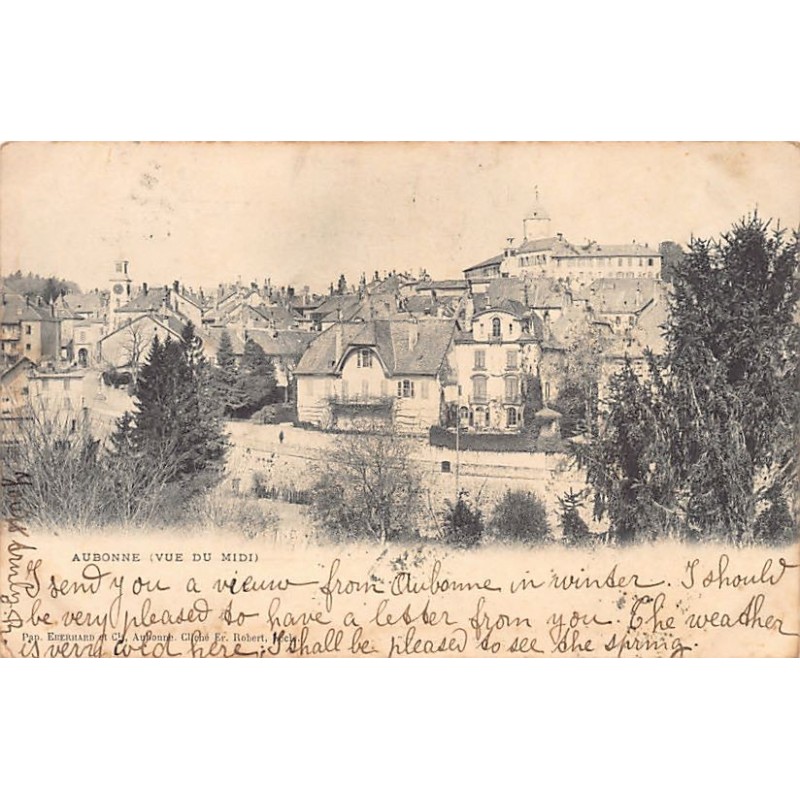 AUBONNE (VUE DU MIDI)
I send you a vieuw from Aubonne in winter. I should
be very pleased to have a letter from you. The weather
Pap. EBERHARD et Cie, Aubonne. Cliché Fr. Robert,
is very cold here; I shall be pleased to see the spring.
Yours truly